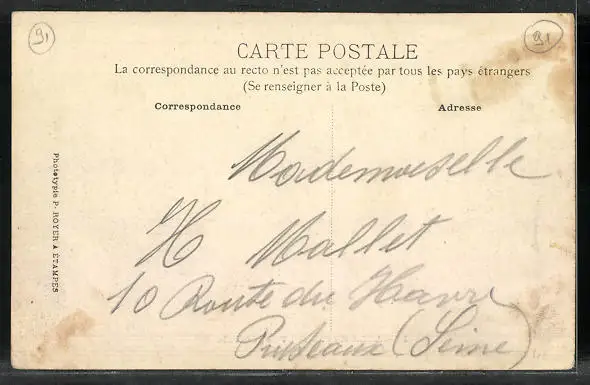 91
91
CARTE POSTALE
La correspondance au recto n'est pas acceptée par tous les pays étrangers
(Se renseigner à la Poste)
Correspondance
Adresse
Mademoiselle
H Mallet
10 Route du Havre
Puteaux (Seine)
Phototypie P. ROYER à ETAMPES